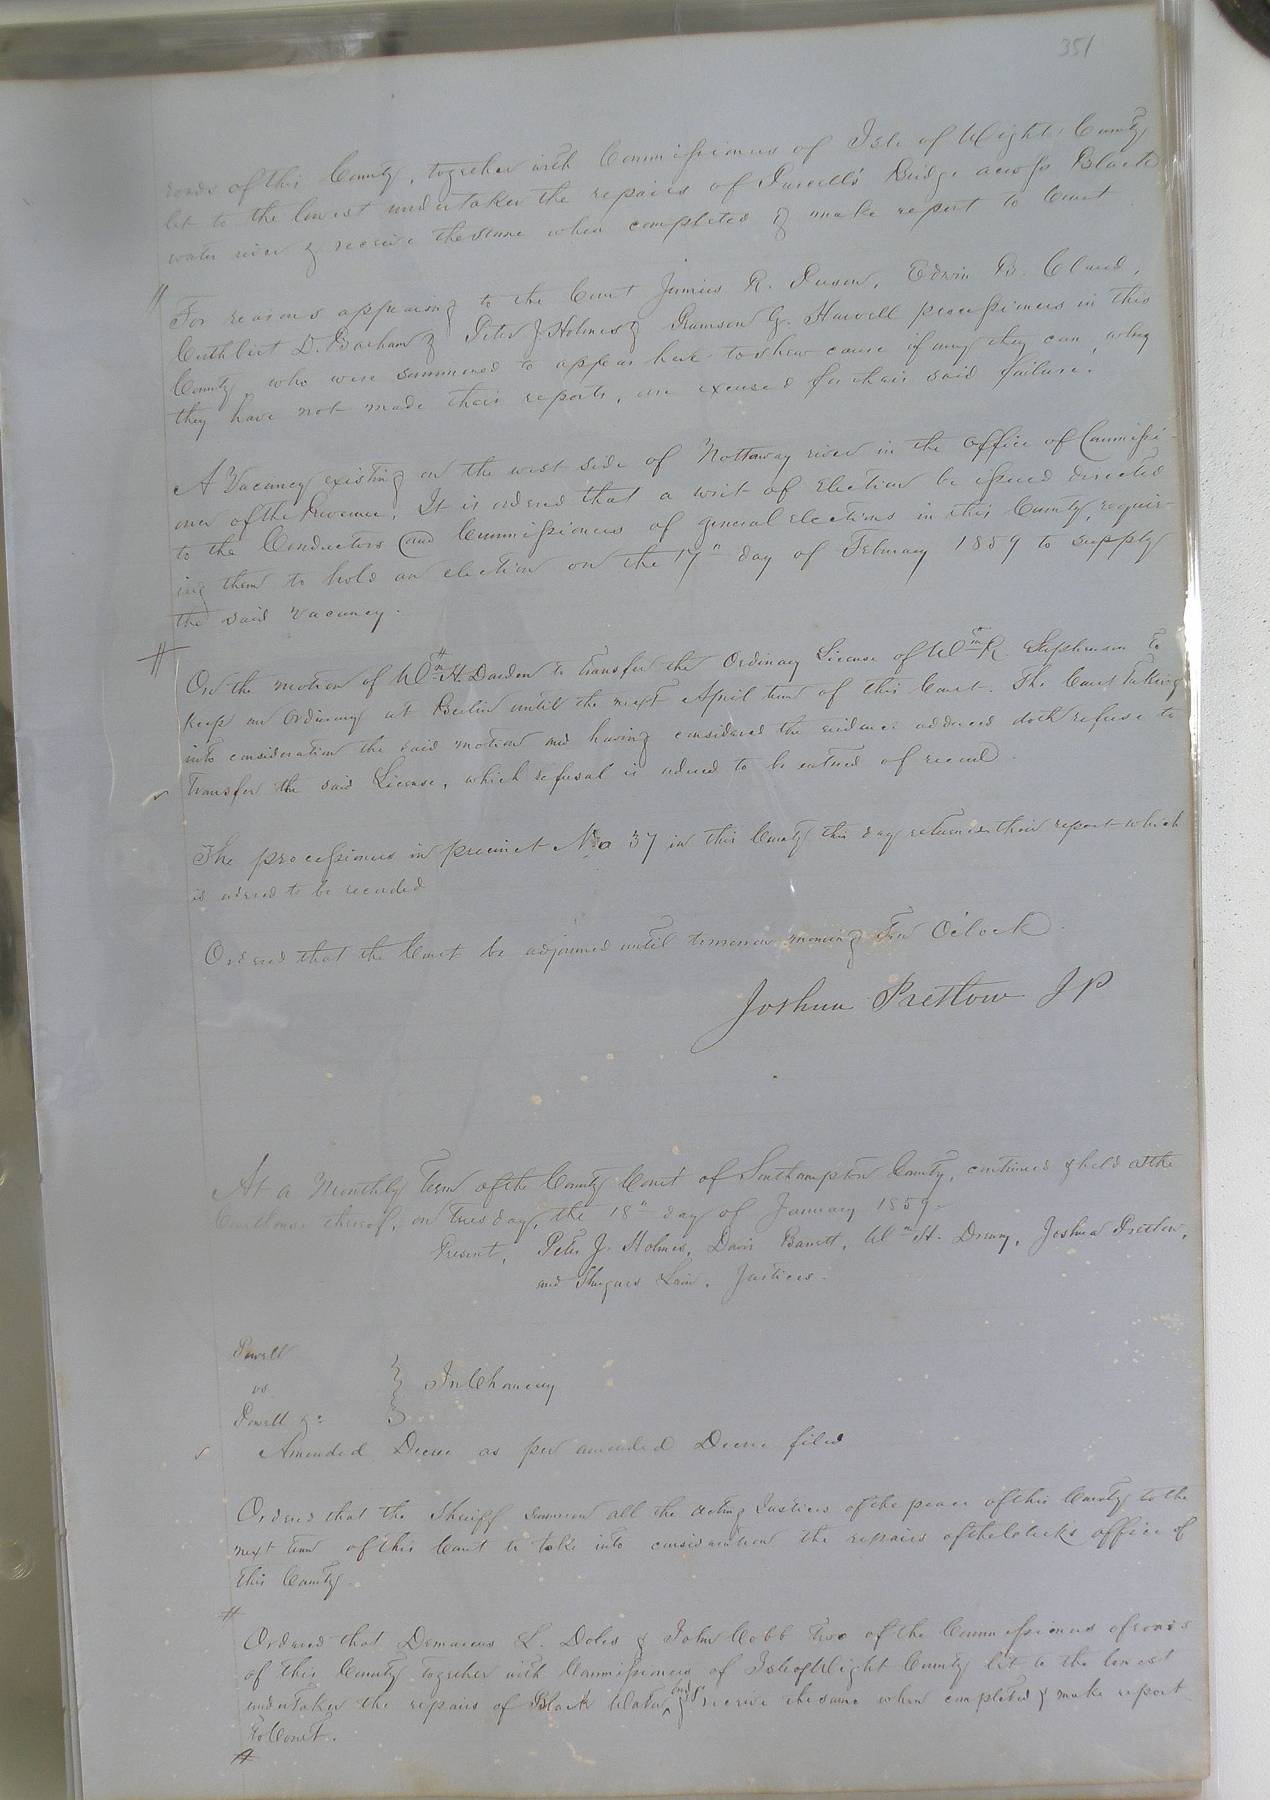 351
roads of this County, together with Commissioners of Isle of Wight County
let to the lowest undertaker the repairs of Purcell's Bridge across Black
water river & receive the same when completed & make report to Court
For reasons appearing to the Court Junius R. Person, Edwin B. Claud,
Cuthbert D. Barham & Peter J. Holmes & Ramson G. Harvell processioners in this
County who were summoned to appear here to shew cause if any they can, why
they have not made their reports, are excused for their said failure.
A Vacancy existing on the west side of Nottoway river in the office of Commissi-
oner of the Revenue, It is ordered that a writ of Election be issued directed
to the Conductors and Commissioners of general elections in this County, requir-
ing them to hold an election on the 17" day of February 1859 to supply
the said Vacancy.
#
On the motion of Wm H. Darden to transfer the Ordinary License of Wm R Stephenson to
keep an Ordinary at Berlin until the next April term of this Court. The Court taking
into consideration the said motion and having considered the evidence adduced doth refuse to
transfer the said License, which refusal is ordered to be entered of record.
The processioners in precinct No 37 in this County this day returned their report which
is ordered to be recorded
Ordered that the Court be adjourned until tomorrow morning Ten O'clock
Joshua Pretlow JP
At a Monthly Term of the County Court of Southampton County, continued & held at the
Courthouse thereof, on Tuesday, the 18" day of January 1859-
Present, Peter J. Holmes, Davis Barrett, Wm H. Drewry, Joshua Pretlow,
and Lain, Justices.
Powell
vs } In Chancery
Powell &c
Amended Decree as per amended Decree filed
Ordered that the Sheriff summon all the acting Justices of the peace of this County to the
next term of this Court to take into consideration the repairs of the Clerk's office of
this County.
#
Ordered that Demarcus L. Doles & John Cobb two of the Commissioners of roads
of this County together with Commissioners of Isle of Wight County let to the lowest
undertaker the repairs of Black Water & receive the same when completed & make report
to Court.
#